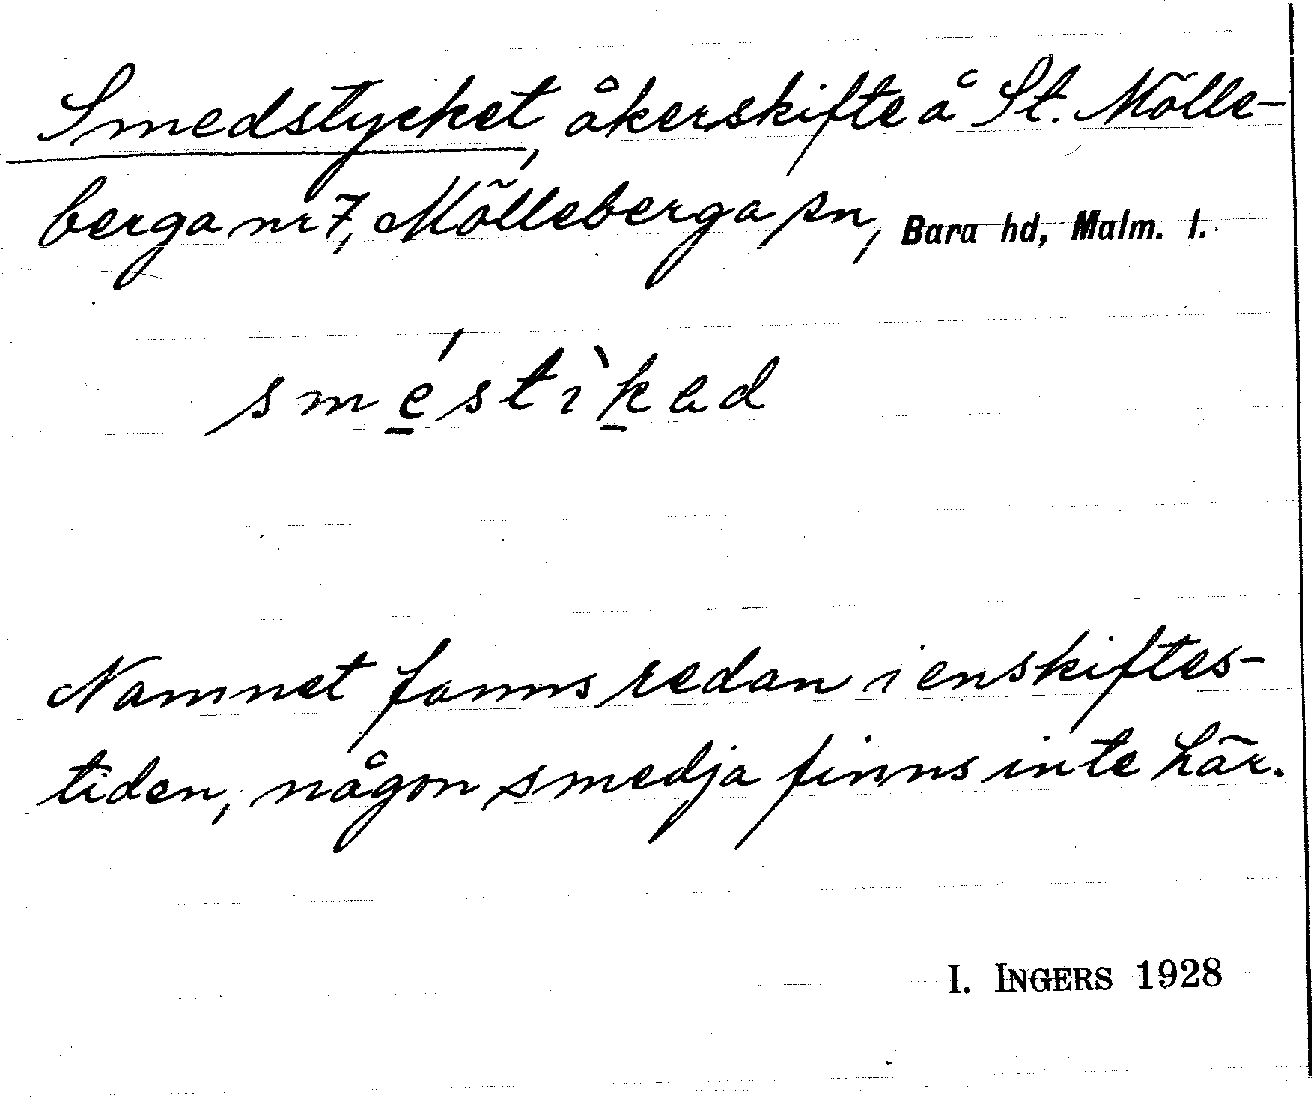 Smedstycket, åkerskifte å St. Mölle-
berga nr 7, Mölleberga sn, Bara hd, Malm. l.
sméstìkad
Namnet fanns redan i enskiftes-
tiden, någon smedja finns inte här.
I. INGERS 1928